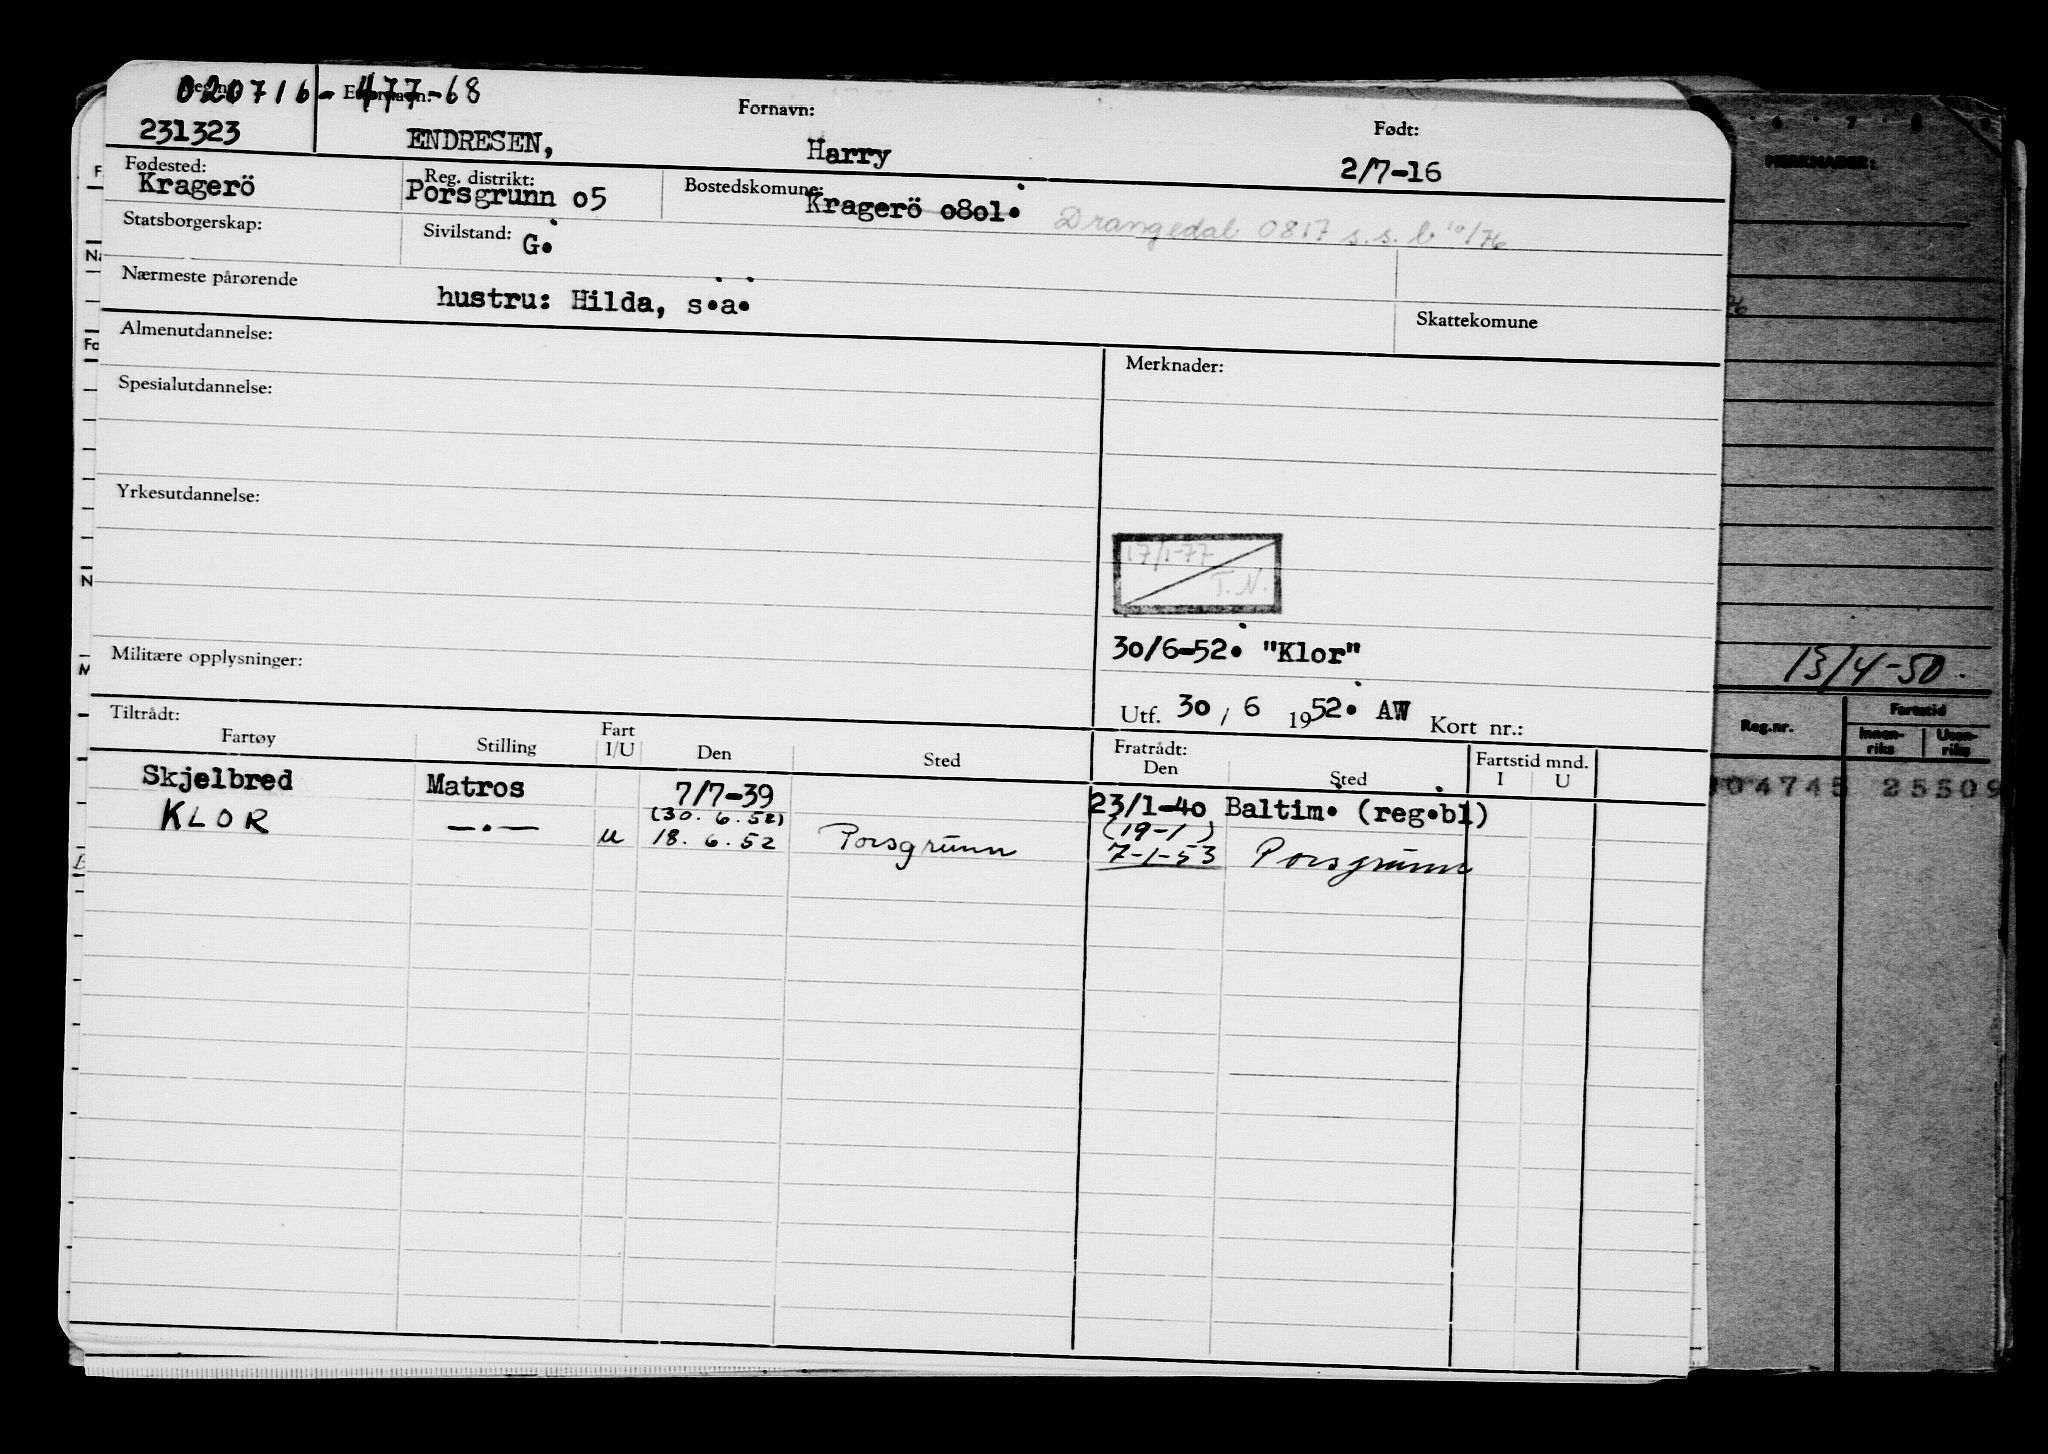 020716-477-68
Etternavn: Fornavn: Født:
231323 ENDRESEN, Harry 2/7-16
Fødested: Reg. distrikt: Bostedskomune:
Kragerö Porsgrunn o5 Kragerö o8o1. Drangedal 0817 s.s. b 10/76
Statsborgerskap: Sivilstand: G.
Nærmeste pårørende
hustru: Hilda, s.a.
Skattekomune
Almenutdannelse:
Merknader:
Spesialutdannelse:
Yrkesutdannelse:
17/1-77
T.N.
30/6-52. "Klor"
Militære opplysninger:
Utf. 30 / 6 1952. AW Kort nr.:
Tiltrådt: Fratrådt: Fartstid mnd.
Fartøy Stilling Fart I/U Den Sted Den Sted I U
Skjelbred Matros 7/7-39 23/1-40 Baltim. (reg.bl)
(30.6.52) (19-1)
KLOR —.— u 18.6.52 Porsgrunn 7-1-53 Porsgrunn
6 7 8 9
MERKNADER:
13/4-50.
Reg.nr. Fartstid
Innen-riks Uten-riks
04745 25509